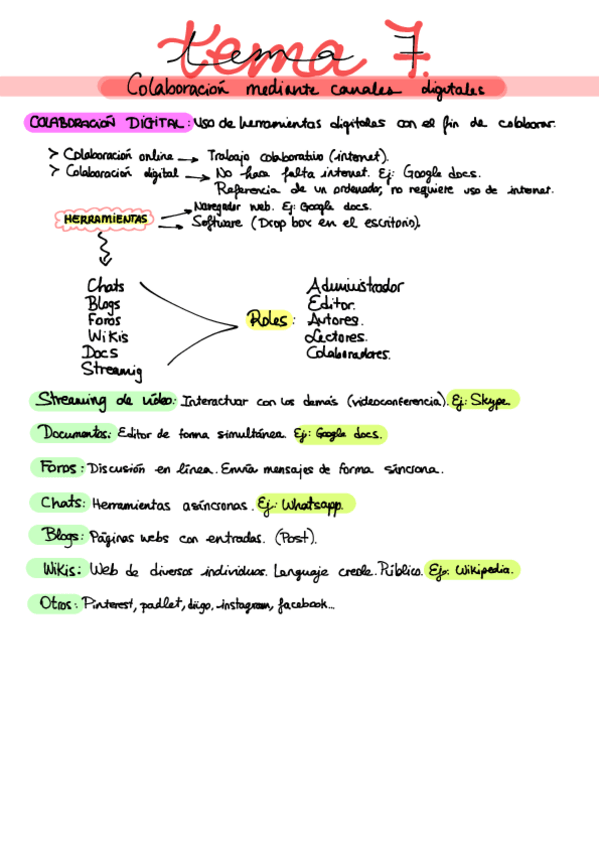 tema 7.
Colaboración mediante canales digitales
COLABORACIÓN DIGITAL: Uso de herramientas digitales con el fin de colaborar.
> Colaboración online → Trabajo colaborativo (internet).
> Colaboración digital → No hace falta internet. Ej: Google docs.
Referencia de un ordenador, no requiere uso de internet.
HERRAMIENTAS → Navegador web. Ej: Google docs.
→ Software (Drop box en el escritorio).
Chats
Blogs
Foros
Wikis
Docs
Streamig
Roles:
Administrador
Editor.
Autores.
Lectores.
Colaboradores.
Streaming de vídeo: Interactuar con los demás (videoconferencia). Ej: Skype.
Documentos: Editor de forma simultánea. Ej: Google docs.
Foros: Discusión en línea. Envía mensajes de forma síncrona.
Chats: Herramientas asíncronas. Ej.: Whatsapp.
Blogs: Páginas webs con entradas. (Post).
Wikis: Web de diversos individuos. Lenguaje creole. Público. Ejo: Wikipedia.
Otros: Pinterest, padlet, diigo, instagram, facebook...